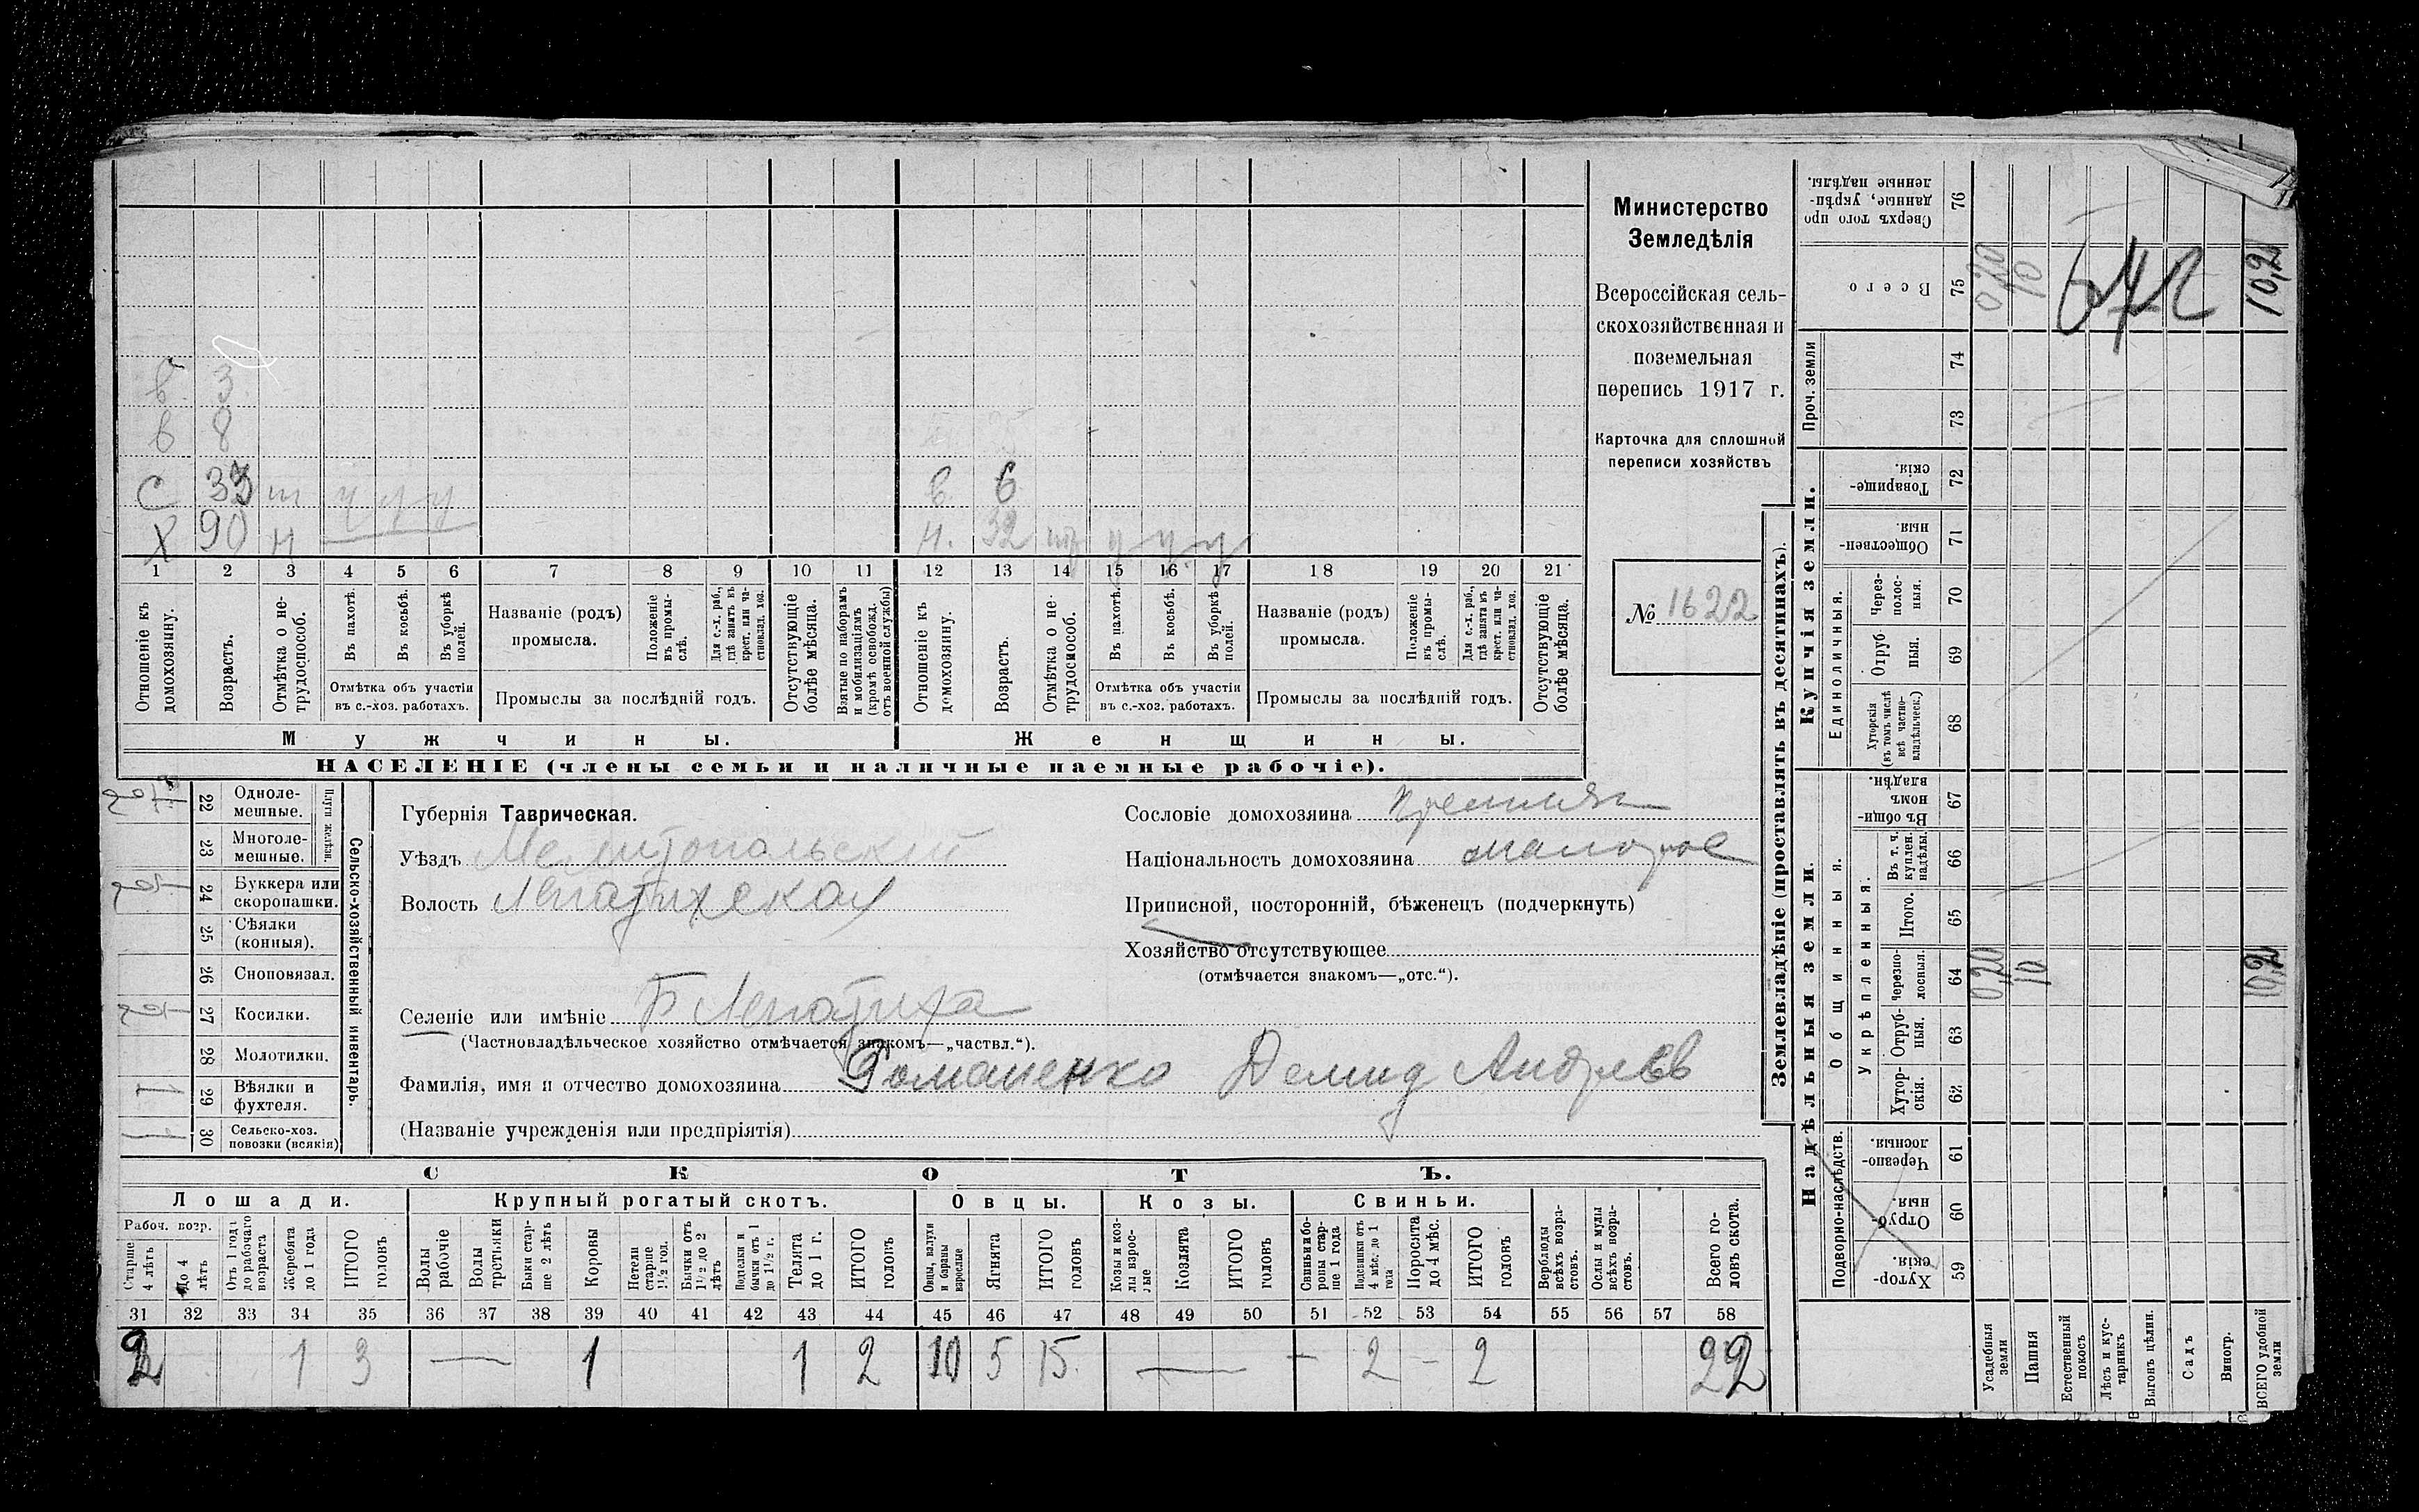 Министерство
Земледѣлія
Всероссійская сель-
скохозяйственная и
поземельная
перепись 1917 г.
Карточка для сплошной
переписи хозяйствъ
№ 1622
в 3
в 8
С 33 ш у у у
в 6
Х 90 н
32 у у у
1 2 3 4 5 6 7 8 9 10 11 12 13 14 15 16 17 18 19 20 21
Отношеніе къ домохозяину.
Возрастъ.
Отмѣтка о не- трудоспособ.
Въ пахотѣ.
Въ косьбѣ.
Въ уборкѣ полей.
Отмѣтка объ участіи
въ с.-хоз. работахъ.
Названіе (родъ)
промысла.
Положеніе въ промы- слѣ.
Для с.-х. раб., гдѣ занятъ въ крест. или ча- стновлад. хоз.
Промыслы за послѣдній годъ.
Отсутствующіе болѣе мѣсяца.
Взятые по наборамъ и мобилизаціямъ (кромѣ освобожд. отъ военной службы)
Отношеніе къ домохозяину.
Возрастъ.
Отмѣтка о не- трудоспособ.
Въ пахотѣ.
Въ косьбѣ.
Въ уборкѣ полей.
Отмѣтка объ участіи
въ с.-хоз. работахъ.
Названіе (родъ)
промысла.
Положеніе въ промы- слѣ.
Для с.-х. раб., гдѣ занятъ въ крест. или ча- стновлад. хоз.
Промыслы за послѣдній годъ.
Отсутствующіе болѣе мѣсяца.
Мужчины.
Женщины.
НАСЕЛЕНІЕ (члены семьи и наличные наемные рабочіе).
Сельско-хозяйственный инвентарь.
Плуги желѣзн.
22 Одноле- мешные.
23 Многоле- мешные.
24 Буккера или скоропашки.
25 Сѣялки (конныя).
26 Сноповязал.
27 Косилки.
28 Молотилки.
29 Вѣялки и фухтеля. 1
30 Сельско-хоз. повозки (всякія) 1
Губернія Таврическая.
Уѣздъ Мелитопольскій
Волость Лепатихская
Селеніе или имѣніе Б Лепатиха
(Частновладѣльческое хозяйство отмѣчается знакомъ—„частвл.“).
Фамилія, имя и отчество домохозяина Романенко Демид Андреев
(Названіе учрежденія или предпріятія)
Сословіе домохозяина
Національность домохозяина малорос
Приписной, посторонній, бѣженецъ (подчеркнуть)
Хозяйство отсутствующее
(отмѣчается знакомъ—„отс.“).
СКОТЪ.
Лошади.
Крупный рогатый скотъ.
Овцы.
Козы.
Свиньи.
Рабоч. возр.
Старше 4 лѣтъ
До 4 лѣтъ
Отъ 1 года до рабочаго возраста
Жеребята до 1 года
ИТОГО головъ
Волы рабочіе
Волы третьяки
Быки стар- ше 2 лѣтъ
Коровы
Нетели старше 1½ год.
Бычки отъ 1½ до 2 лѣтъ
Подтелки и бычки отъ 1 до 1½ г.
Телята до 1 г.
ИТОГО головъ
Овцы, валухи и бараны взрослые
Ягнята
ИТОГО головъ
Козы и коз- лы взрос- лые
Козлята
ИТОГО головъ
Свиньи и бо- ровы стар- ше 1 года
Подсвинки отъ 4 мѣс. до 1 года
Поросята до 4 мѣс.
ИТОГО головъ
Верблюды всѣхъ возра- стовъ.
Ослы и мулы всѣхъ возра- стовъ.
Всего го- ловъ скота.
31 32 33 34 35 36 37 38 39 40 41 42 43 44 45 46 47 48 49 50 51 52 53 54 55 56 57 58
2 1 3 — 1 1 2 10 5 15 — — 2 — 2 22
Землевладѣніе (проставлять въ десятинахъ).
Надѣльныя земли.
Купчія земли.
Подворно-наслѣдств.
Общинныя.
Укрѣпленныя.
Единоличныя.
Проч. земли
Хутор- скія. 59
Отруб- ныя. 60
Черезпо- лосныя. 61
Хутор- скія. 62
Отруб- ныя. 63
Черезпо- лосныя. 64
Итого. 65
Въ т. ч. куплен. надѣлы. 66
Въ общи- номъ владѣн. 67
Хуторскія (въ томъ числѣ всѣ частно- владѣльческ.) 68
Отруб- ныя. 69
Через- полос- ныя. 70
Обществен- ныя. 71
Товарище- скія. 72
73
74
Всего 75
Сверхъ того про- данные, укрѣп- ленные надѣлы. 76
Усадебныя земли
Пашня
Естественный покосъ
Лѣсъ и кус- тарникъ
Выгонъ цѣлин.
Садъ
Виногр.
ВСЕГО удобной земли
0,20 10 10,2
0,20 10 10,2